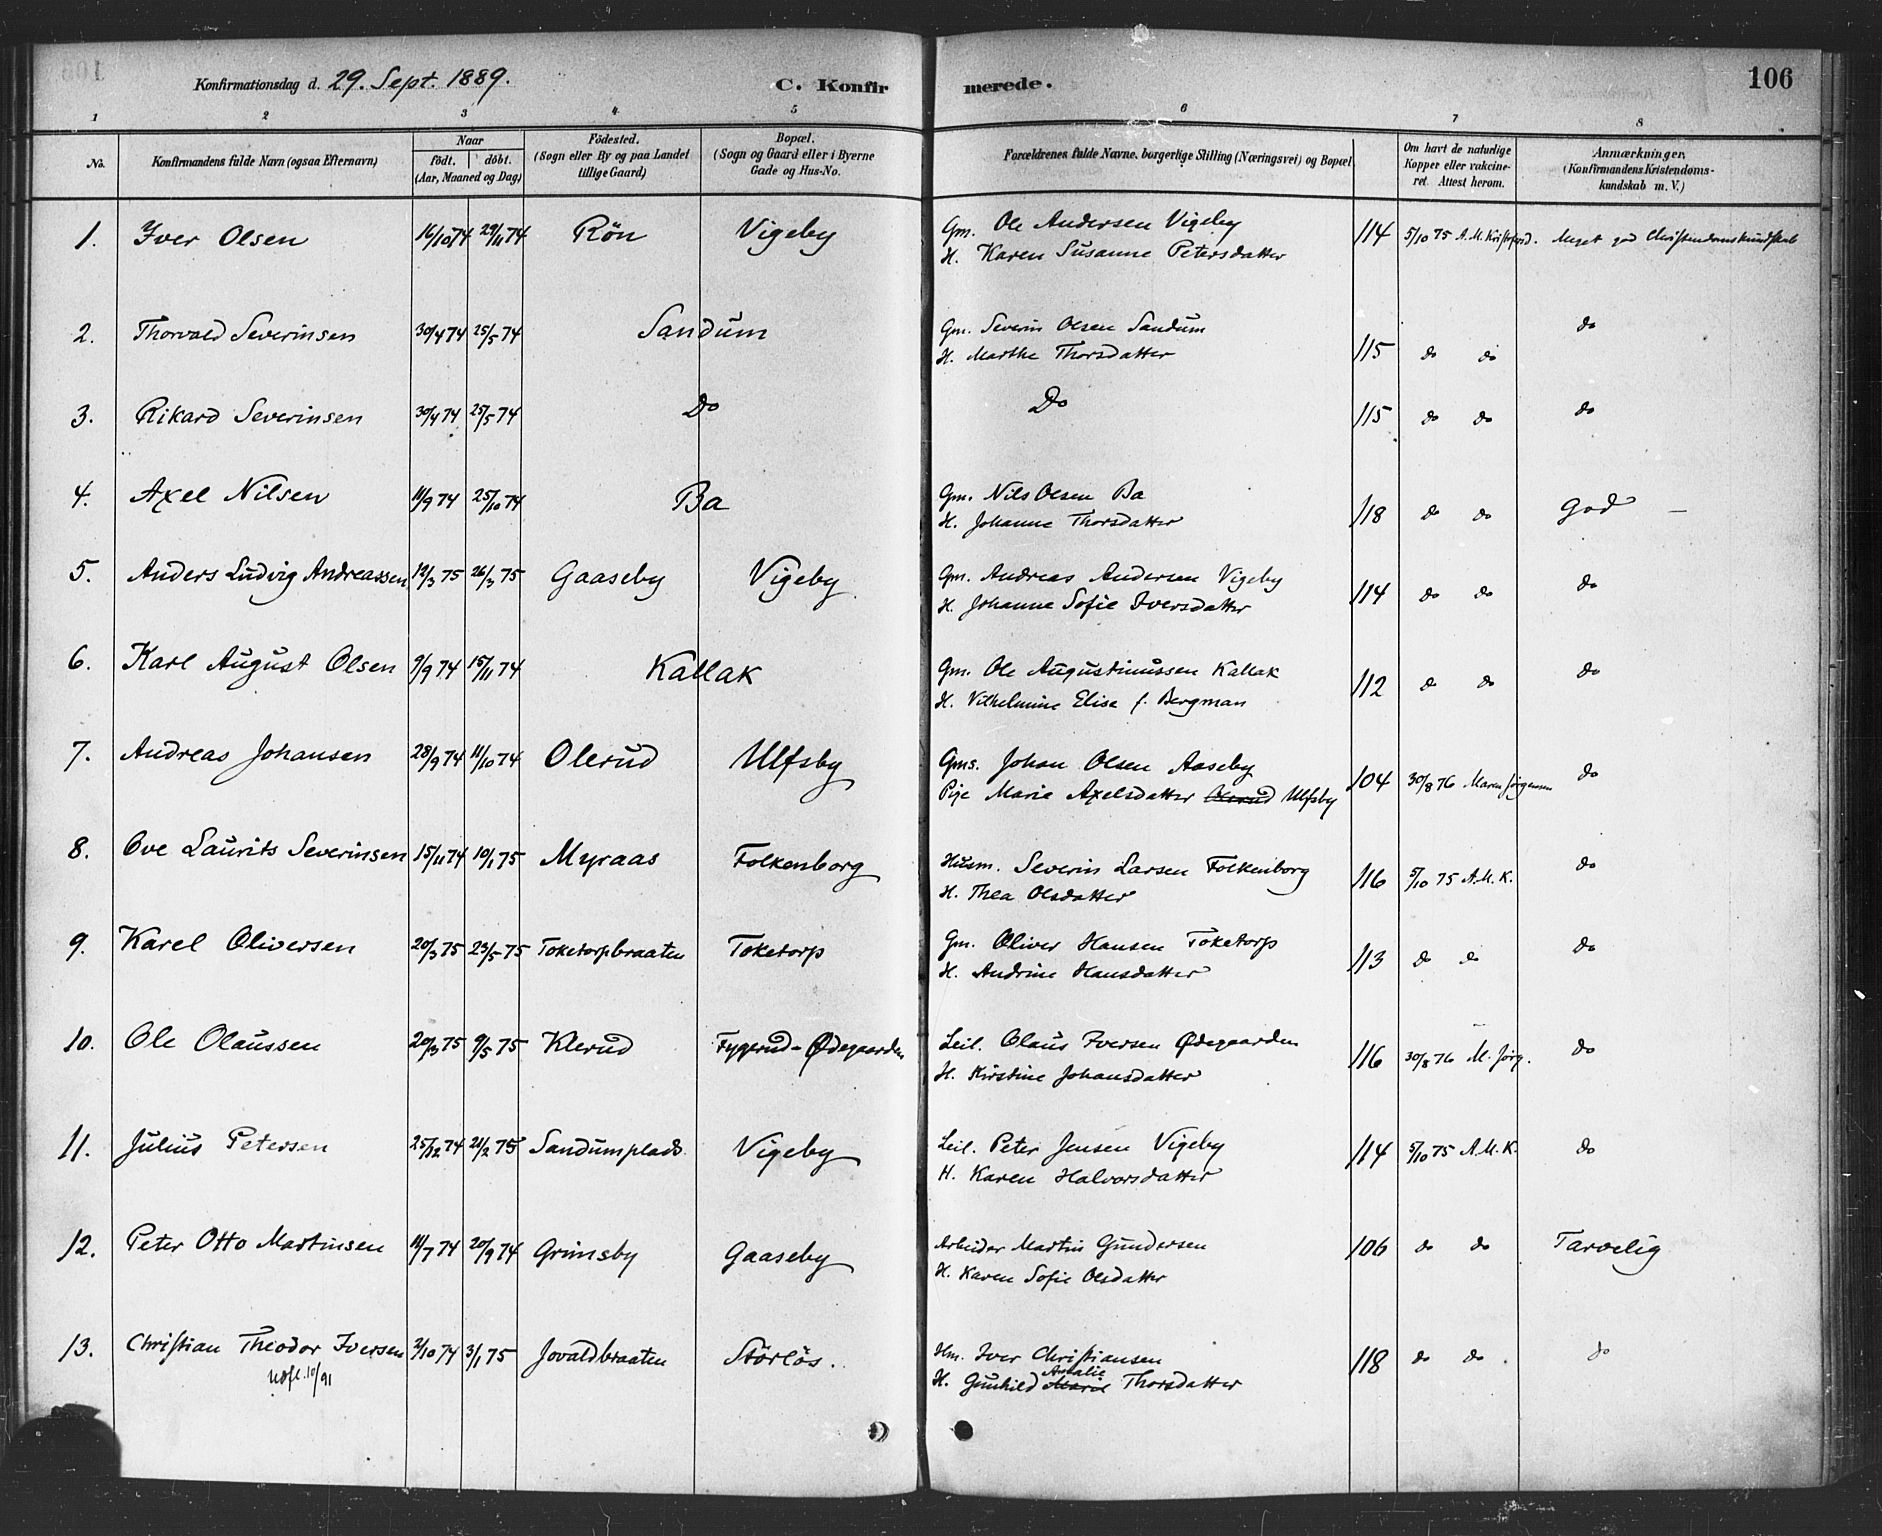 Konfirmationsdag d. 29. Sept. 1889. C. Konfirmerede. 106
1 2 3 4 5 6 7 8
No. Konfirmandens fulde Navn (ogsaa Efternavn) Naar født. døbt. (Aar, Maaned og Dag) Födested. (Sogn eller By og paa Landet tillige Gaard) Bopæl. (Sogn og Gaard eller i Byerne Gade og Hus-No. Forældrenes fulde Navne, borgerlige Stilling (Næringsvei) og Bopæl Om havt de naturlige Kopper eller vakcineret. Attest herom. Anmærkninger, (Konfirmandens Kristendomskundskab m. V.)
1. Iver Olsen 16/10 74 29/11 74 Røn Vigeby Gm. Ole Andersen Vigeby 114 5/10 75 A. M. Kristofersd. Meget god Christendomskundskab
H. Karen Susanne Petersdatter
2. Thorvald Severinsen 30/4 74 25/5 74 Sandum Gm. Severin Olsen Sandum 115 do do do
H. Marthe Thorsdatter
3. Rikard Severinsen 30/4 74 25/5 74 Do Do 115 do do do
4. Axel Nilsen 11/9 74 25/10 74 Ba Gm. Nils Olsen Ba 118 do do God —
H. Johanne Thorsdatter
5. Anders Ludvig Andreassen 12/3 75 26/3 75 Gaaseby Vigeby Gm. Andreas Andersen Vigeby 114 do do do
H. Johanne Sofie Iversdatter
6. Karl August Olsen 9/9 74 15/11 74 Kallak Gm. Ole Augustinussen Kallak 112 do do do
H. Vilhelmine Elise f. Bergman
7. Andreas Johansen 28/9 74 11/10 74 Olerud Ulfsby Gms. Johan Olsen Aaseby 104 30/8 76 Maren Jørgensen do
Pige Marie Axelsdatter Olerud Ulfsby
8. Ove Laurits Severinsen 15/11 74 10/1 75 Myraas Folkenborg Husm. Severin Larsen Folkenborg 116 5/10 75 A. M. K. do
H. Thea Olsdatter
9. Karel Oliversen 20/3 75 23/5 75 Toketorpbraaten Toketorp Gm. Oliver Hansen Toketorp 113 do do do
H. Andrine Hansdatter
10. Ole Olaussen 20/3 75 9/5 75 Klerud Fygerud-Ødegaarden Leil. Olaus Iversen Ødegaarden 116 30/8 76 M. Jørg. do
H. Kirstine Johansdatter
11. Julius Petersen 25/12 74 21/2 75 Sandumplads. Vigeby Leil. Peter Jensen Vigeby 114 5/10 75 A. M. K. do
H. Karen Halvorsdatter
12. Peter Otto Martinsen 11/7 74 20/9 74 Grimsby Gaaseby Arbeider Martin Gundersen 106 do do Tarvelig
H. Karen Sofie Olsdatter
13. Christian Theodor Iversen 2/10 74 3/1 75 Jovaldbraaten Störlös. Hm. Iver Christiansen 118 do do do
H. Gunhild Marie Amalie Thorsdatter
udfl. 10/91